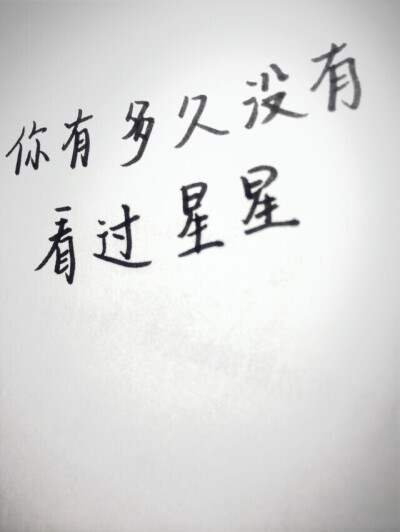 你有多久没有
看过星星